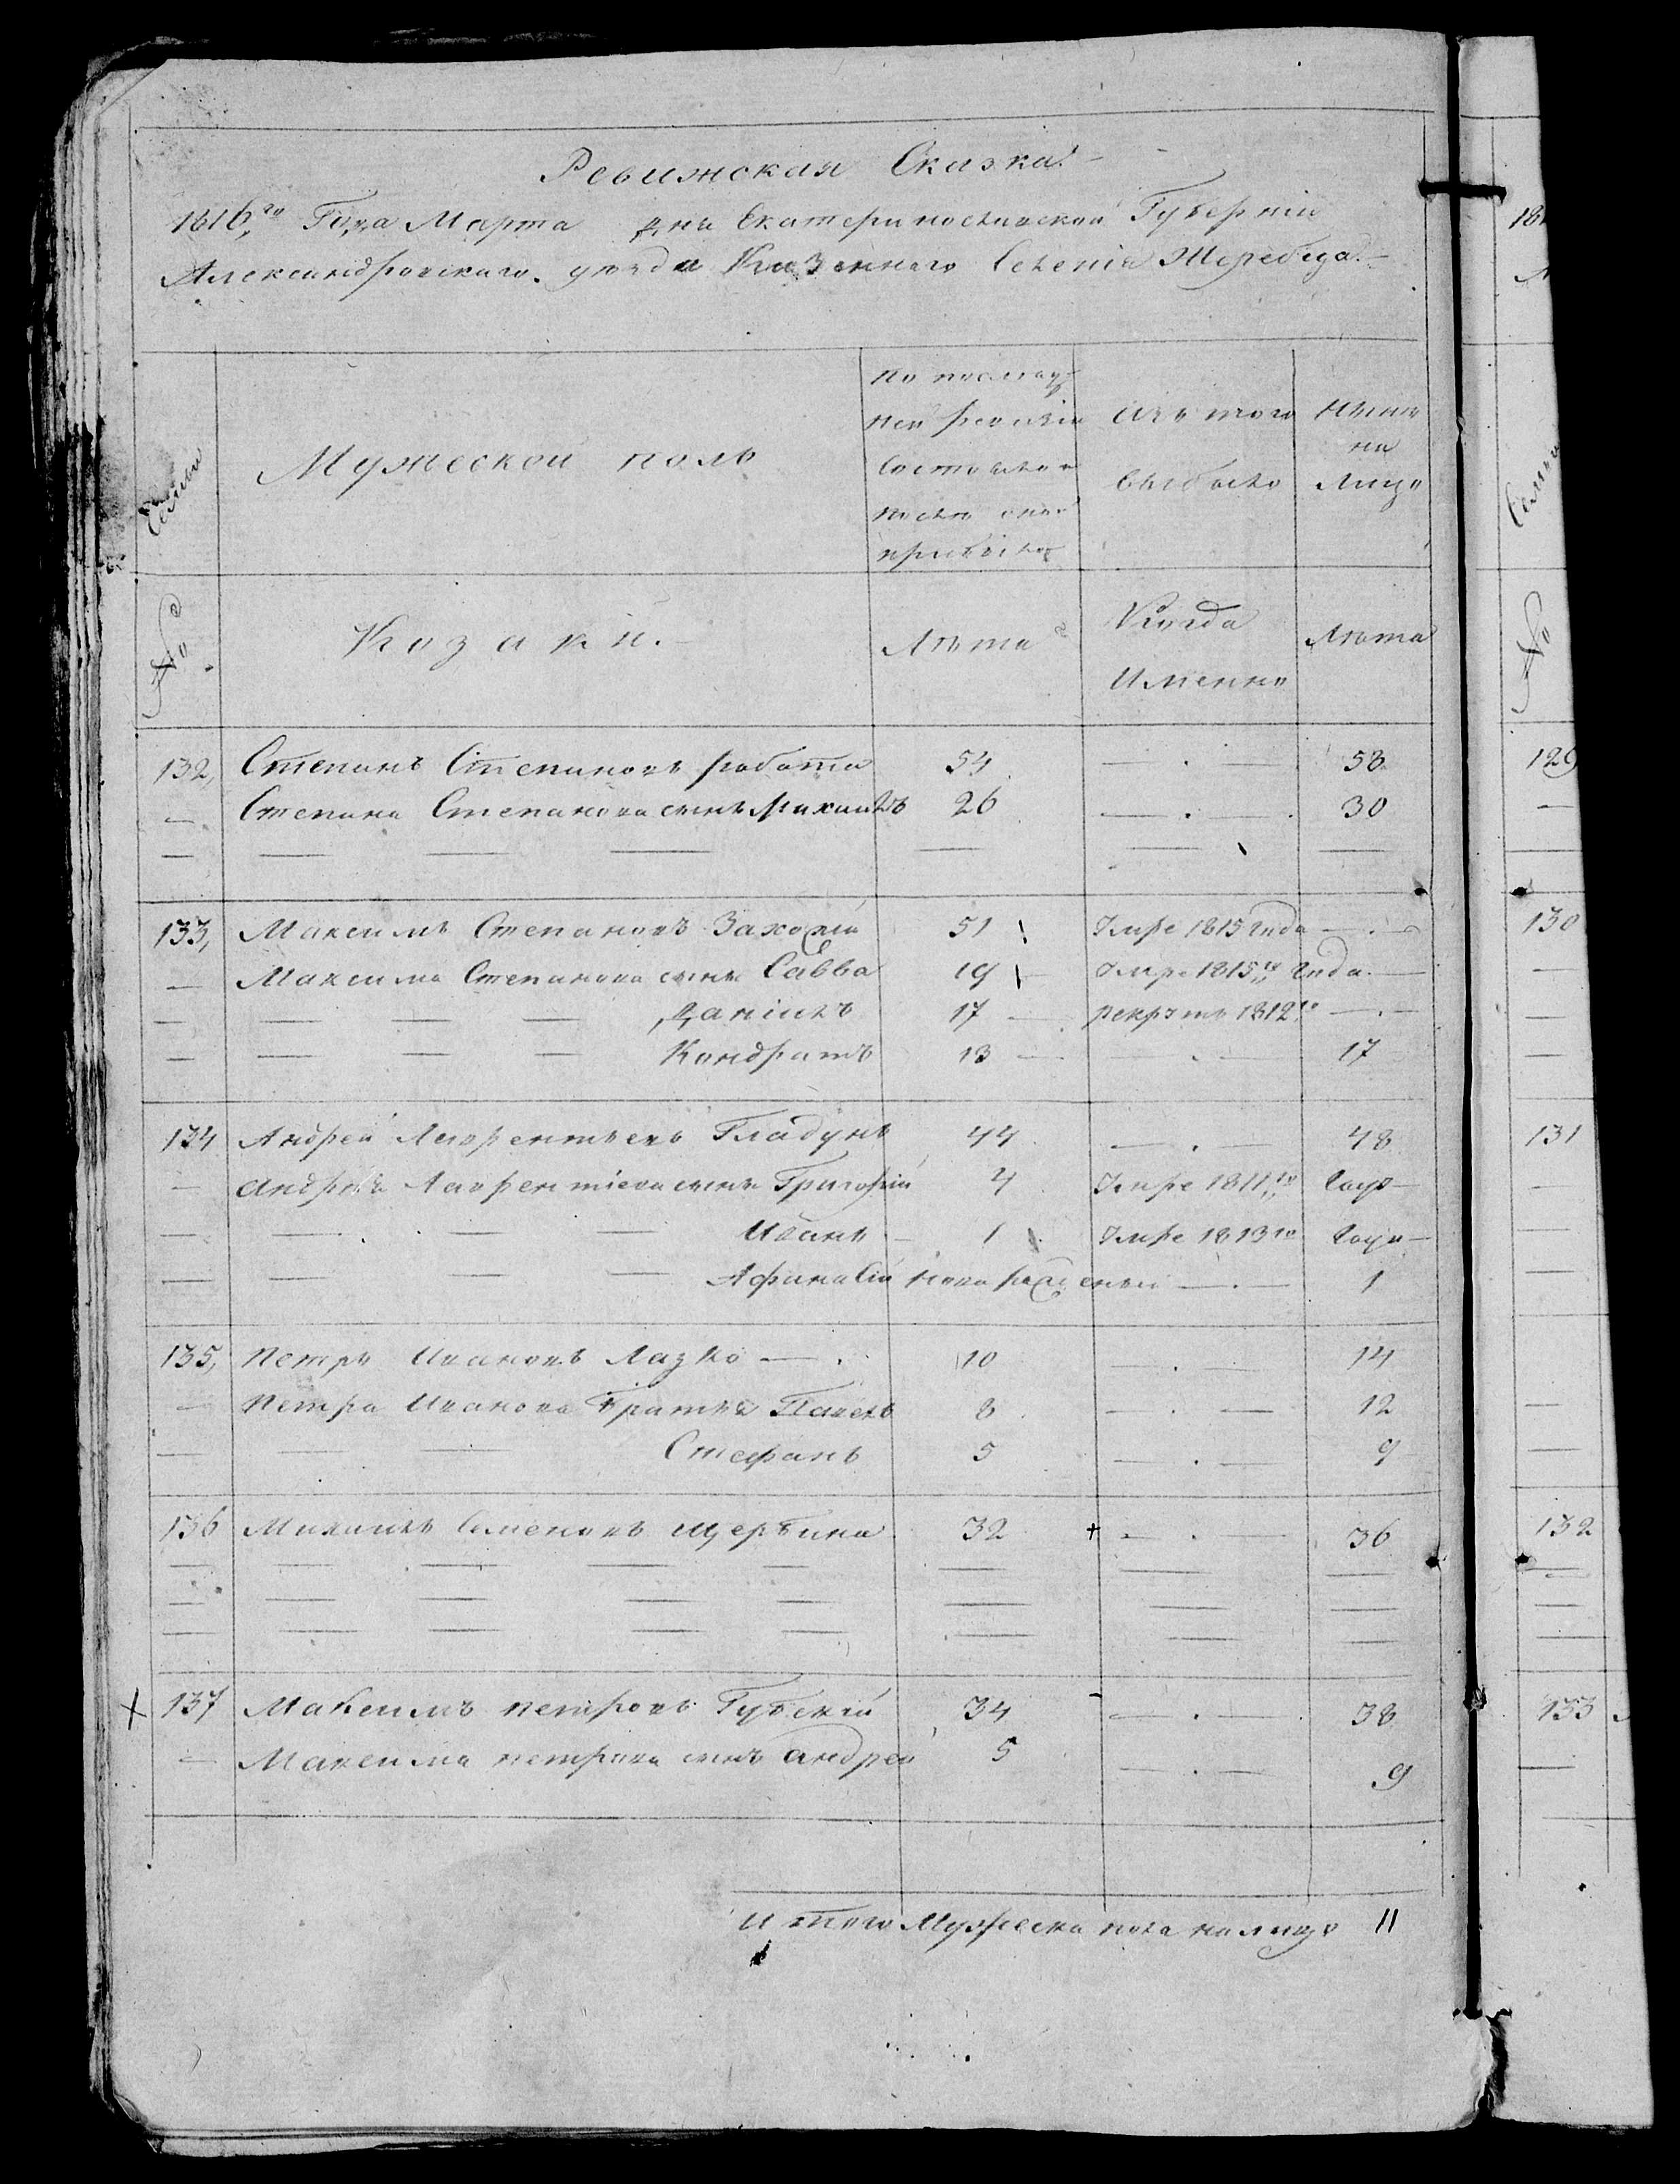 Ревижская Сказка
1816,го Года Марта дня Екатеринославской Губернiи
Александровскаго уезда Казенного Селенiя Жеребца
Семьи
Мужеской полъ
По послед
ней ревизiи
Состояло и
после оной
прибыло
Изъ того
выбыло
Ныне
на
лицо
№
Козаки.
Лета
Когда
Именно
Лета
132, Степанъ Степановъ работа 54 — . — 58
— Степана Степанова сынъ Михаилъ 26 — . — 30
133, Максимъ Степановъ Захожiй 51 Умре 1815 года — . —
— Максима Степанова сынъ Савва 19 Умре 1815го года. —
— — — — Данiилъ 17 — рекрутъ 1812го — . —
— — — — Кондратъ 13 — . — 17
134 Андрей Лаврентьевъ Гладунъ 44 — . — 48
— Андрея Лаврентiева сынъ Григорiй 4 Умре 1811го году —
— — . — — Иванъ — 1 Умре 1813го году —
— — — — Афанасiй новорожденый — . — 1
135, Петръ Ивановъ Лазко — . 10 — . — 14
— Петра Иванова Братья Павелъ 8 — . — 12
— — — Стефанъ 5 — . — 9
136 Михаилъ Семеновъ Щербина 32 + — . — 36
X 137 Максимъ Петровъ Губскiй 34 — . — 38
— Максима петрова сынъ андрей 5 — . — 9
Итого Мужеска пола налицо 11
181
Семьи
№
129
130
131
132
133